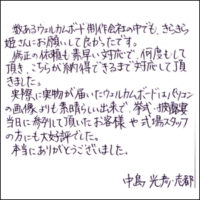 数あるウェルカムボード制作会社の中でも、きらきら
姫さんにお願いして良かったです。
修正の依頼も素早い対応で、何度もして
頂き、こちらが納得できるまで対応して頂
きました。
実際に実物が届いたウェルカムボードはパソコン
の画像よりも素晴らしい出来で、挙式・披露宴
当日に参列して頂いたお客様や式場スタッフ
の方にも大好評でした。
本当にありがとうございました。
中島